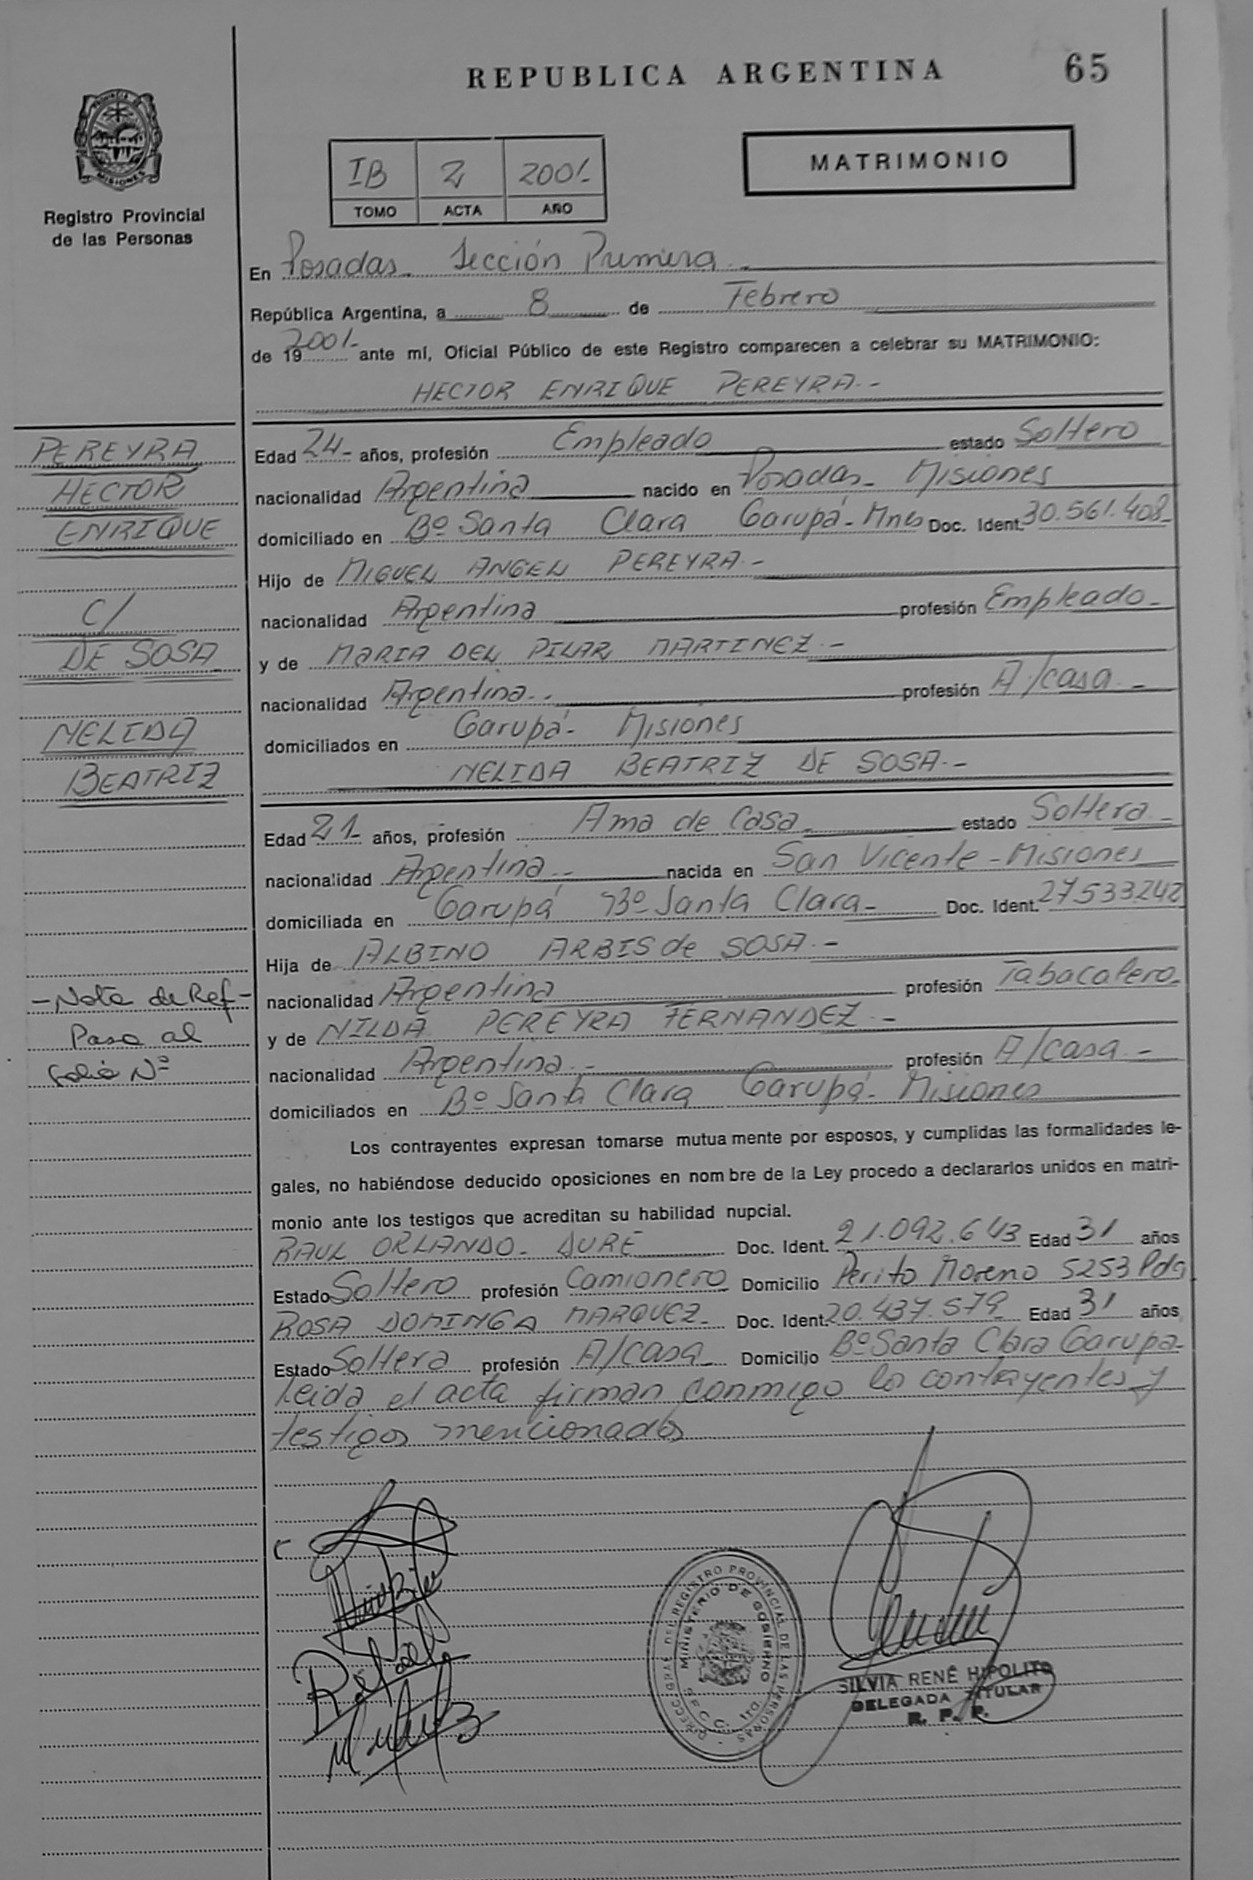 REPUBLICA ARGENTINA 65
Registro Provincial
de las Personas
MISIONES
IB 2 2001-
TOMO ACTA AÑO
MATRIMONIO
En Posadas - Sección Primera -
República Argentina, a 8 de Febrero
de 19 2001- ante mí, Oficial Público de este Registro comparecen a celebrar su MATRIMONIO:
HECTOR ENRIQUE PEREYRA.-
PEREYRA
HECTOR
ENRIQUE
C/
DE SOSA
NELIDA
BEATRIZ
Edad 24- años, profesión Empleado estado Soltero
nacionalidad Argentina nacido en Posadas - Misiones
domiciliado en Bº Santa Clara Garupá - Mnes Doc. Ident. 30.561.408-
Hijo de MIGUEL ANGEL PEREYRA.-
nacionalidad Argentina profesión Empleado-
y de MARIA DEL PILAR MARTINEZ.-
nacionalidad Argentina.- profesión A/casa.-
domiciliados en Garupá - Misiones
NELIDA BEATRIZ DE SOSA.-
Edad 21- años, profesión Ama de Casa estado Soltera-
nacionalidad Argentina.- nacida en San Vicente - Misiones
domiciliada en Garupá Bº Santa Clara- Doc. Ident. 27533242
Hija de ALBINO ARBIS de SOSA.-
nacionalidad Argentina profesión Tabacalero-
y de NILDA PEREYRA FERNANDEZ.-
nacionalidad Argentina.- profesión A/casa.-
domiciliados en Bº Santa Clara Garupá - Misiones
- Nota de Ref -
Pasa al
folio Nº
Los contrayentes expresan tomarse mutua mente por esposos, y cumplidas las formalidades le-
gales, no habiéndose deducido oposiciones en nom bre de la Ley procedo a declararlos unidos en matri-
monio ante los testigos que acreditan su habilidad nupcial.
RAUL ORLANDO - DURE Doc. Ident. 21.092.643 Edad 31 años
Estado Soltero profesión Camionero Domicilio Perito Moreno 5253 Pdas
ROSA DOMINGA MARQUEZ- Doc. Ident. 20.437.579 Edad 31 años
Estado Soltera profesión A/casa Domicilio Bº Santa Clara Garupa-
Leida el acta firman conmigo los contrayentes y
testigos mencionados
DIRECC. GRAL. DEL REGISTRO PROVINCIAL DE LAS PERSONAS
MINISTERIO DE GOBIERNO
SILVIA RENÉ HIPOLITO
DELEGADA TITULAR
R. P. P.